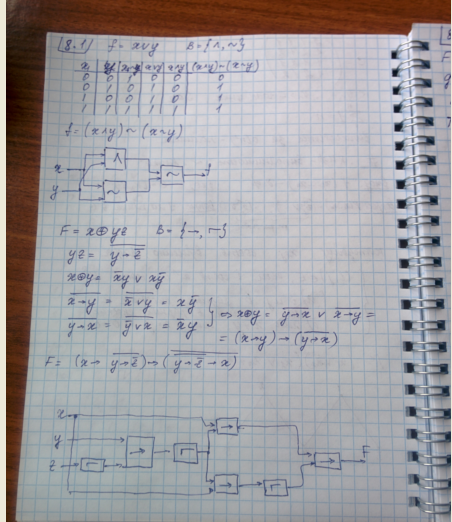 8.1 f = x∨y B = {∧, ~}
x y x~y x∨y x∧y (x∧y)~(x~y)
0 0 1 0 0 0
0 1 0 1 0 1
1 0 0 1 0 1
1 1 1 1 1 1
f = (x∧y) ~ (x~y)
x ∧
~ f
y ~
F = x⊕yz B = {→, ¬}
yz = \overline{y→\overline{z}}
x⊕y = \overline{x}y ∨ x\overline{y}
\overline{x→y} = \overline{\overline{x}∨y} = x\overline{y}
\overline{y→x} = \overline{\overline{y}∨x} = \overline{x}y
⇒ x⊕y = \overline{y→x} ∨ \overline{x→y} =
= (x→y)→(\overline{y→x})
F = (x→ \overline{y→\overline{z}})→(\overline{\overline{y→\overline{z}}→x})
x →
y → ¬ → F
z ¬
→ ¬